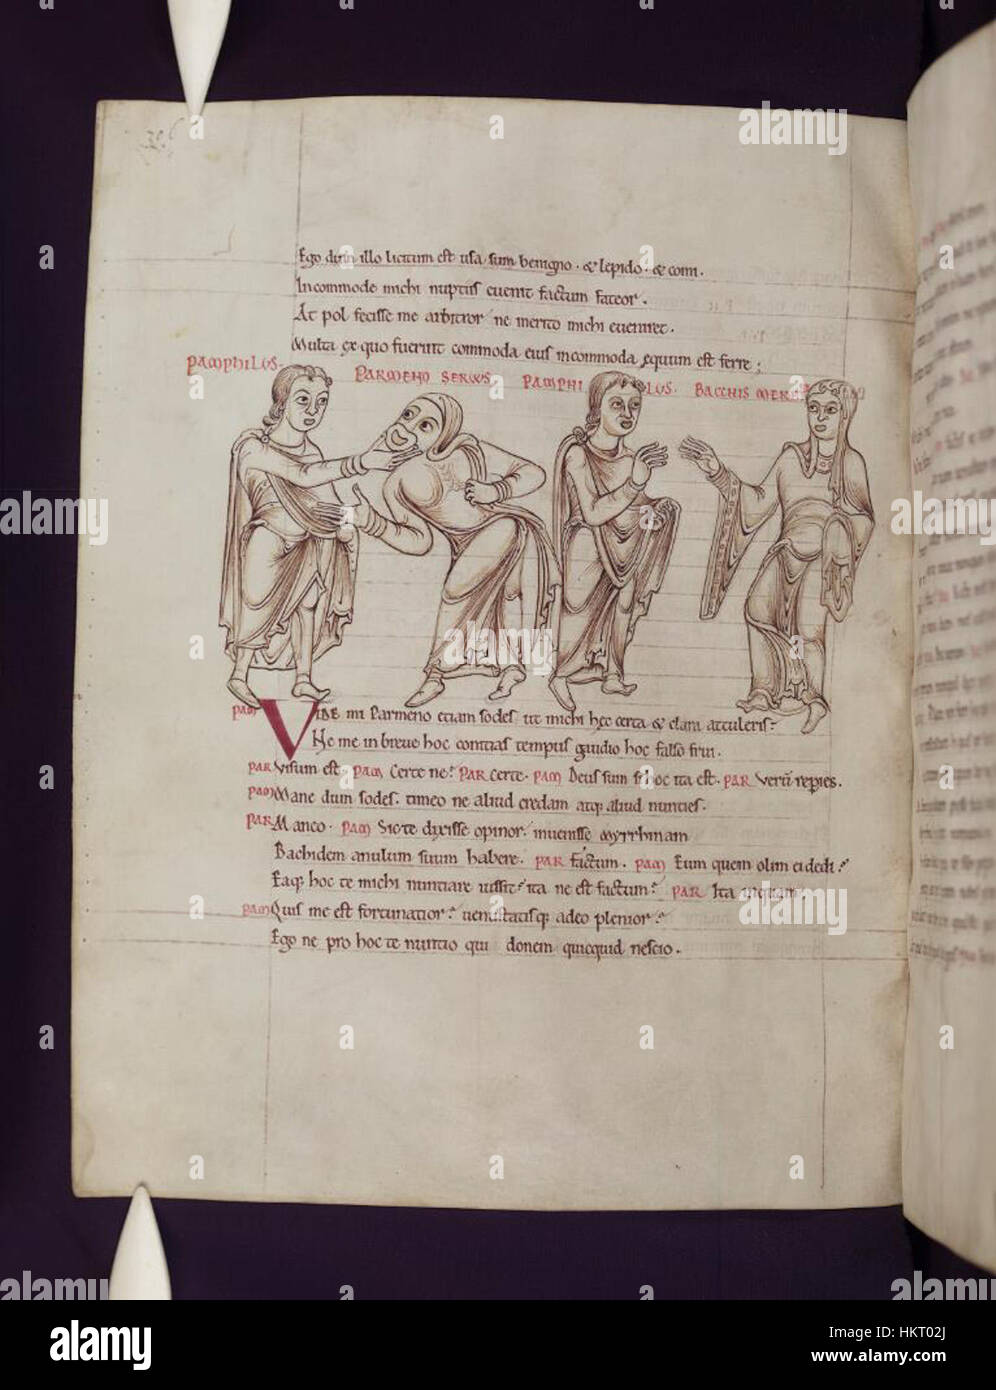 Ego dum illo licitum est usa sum benigno · & lepido · & comi.
Incommode michi nuptus evenit factum fateor.
At pol fecisse me arbitror ne merito michi eveniret.
Multa ex quo fuerint commoda eius incommoda equum est ferre;
PAMPHILUS. PARMENO SERVUS PAMPHI LUS. BACCHIS
PAM VIDE mi Parmeno etiam sodes ut michi hec certa & clara attuleris:
Ne me in breve hoc contias tempus gaudio hoc falso frui.
PAR Visum est. PAM Certe ne? PAR certe. PAM Deus sum si hoc ita est. PAR Verũ repies.
PAM Mane dum sodes. timeo ne aliud credam atq; aliud nunties.
PAR Maneo. PAM Sic te dixisse opinor. invenisse Myrrhinam
Bachidem anulum suum habere. PAR factum. PAM Eum quem olim ei dedi?
Eaq; hoc te michi nuntiare iussit? ita ne est factum? PAR Ita inquam.
PAM Quis me est fortunatior? venustatisq; adeo plenior?
Ego ne pro hoc te nuntio qui donem quicquid nescio.
alamy
Image ID: HKT02J
www.alamy.com